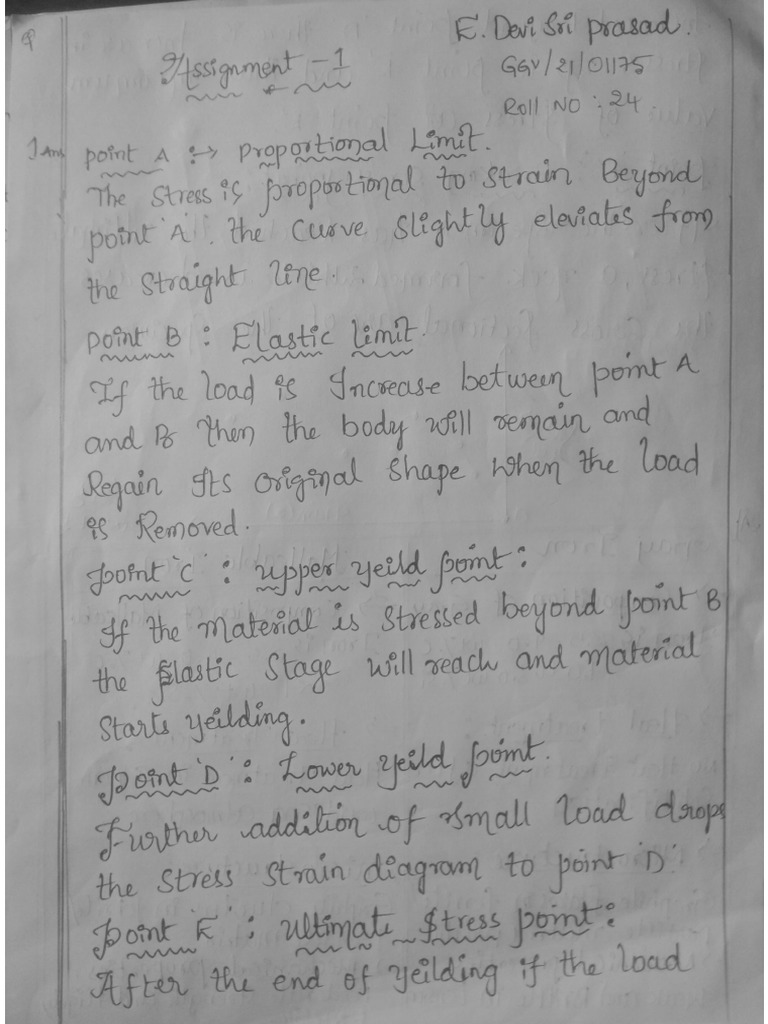 E. Devi Sri prasad.
Assignment - 1
GGV/21/01175
Roll NO : 24.
1 Ans point A :→ Proportional Limit.
The Stress is proportional to Strain Beyond
point 'A'. the Curve Slightly eleviates from
the Straight line.
point B : Elastic limit.
If the load is Increase between point A
and B then the body will remain and
Regain Its original Shape when the load
is Removed.
point 'C' : upper yeild point :
If the Material is Stressed beyond point B
the Plastic Stage will reach and material
Starts yeilding.
Point 'D' : Lower yeild point.
Further addition of small load drops
the Stress Strain diagram to point 'D'
Point 'E' : ultimate Stress point :
After the end of yeilding if the load